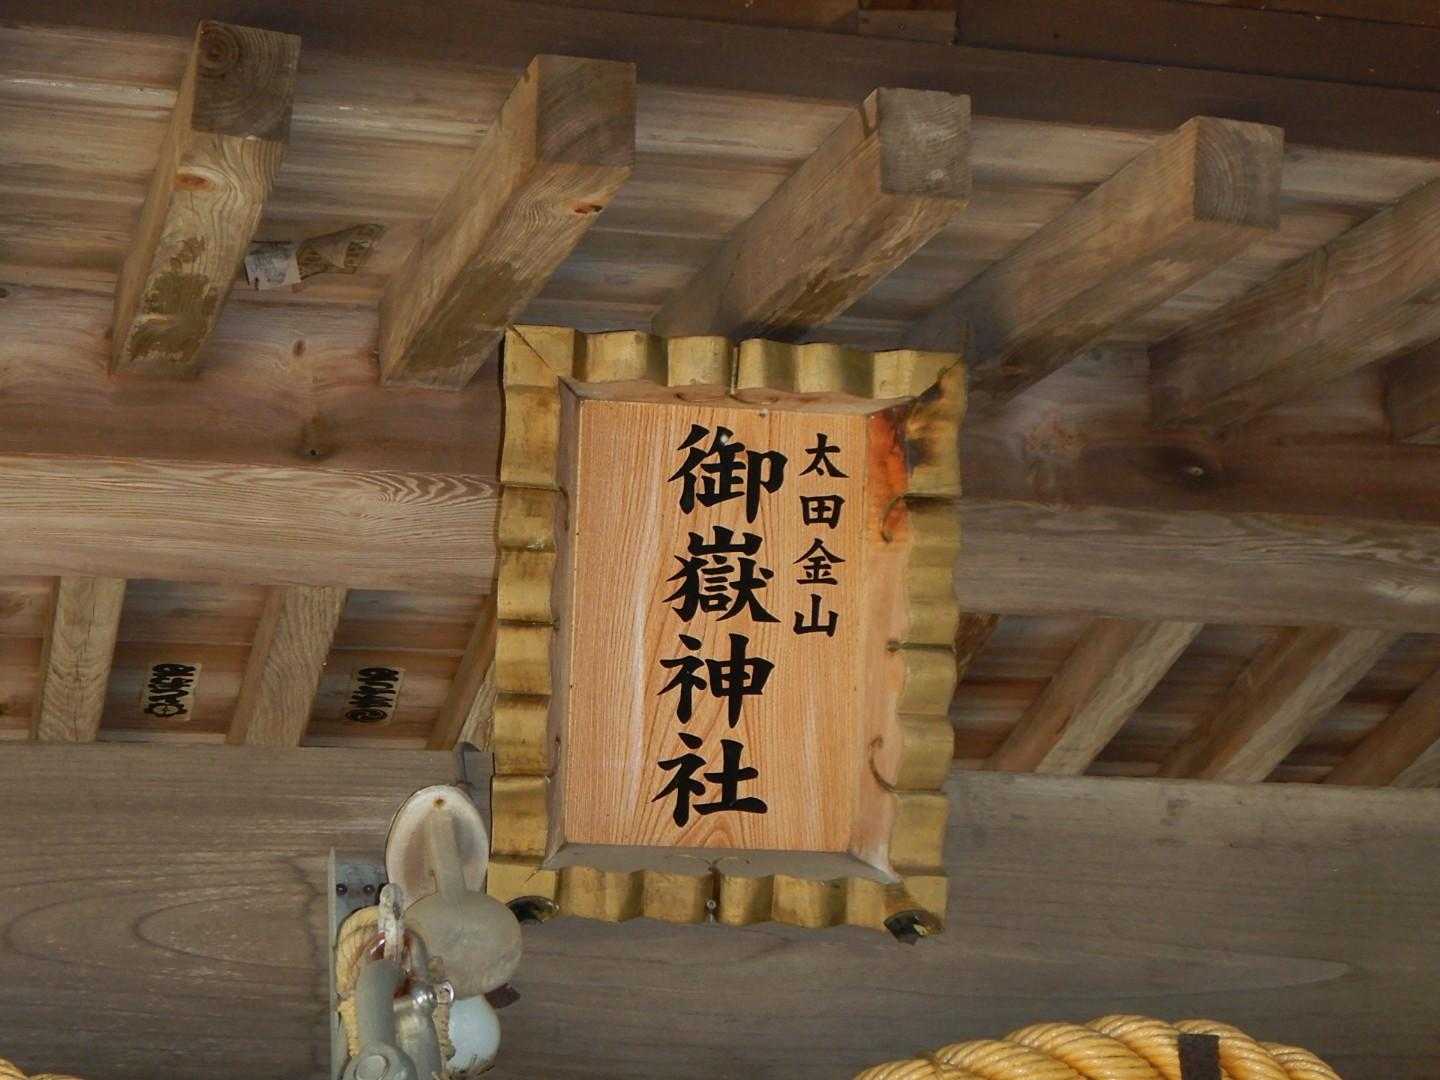 太田金山
御嶽神社